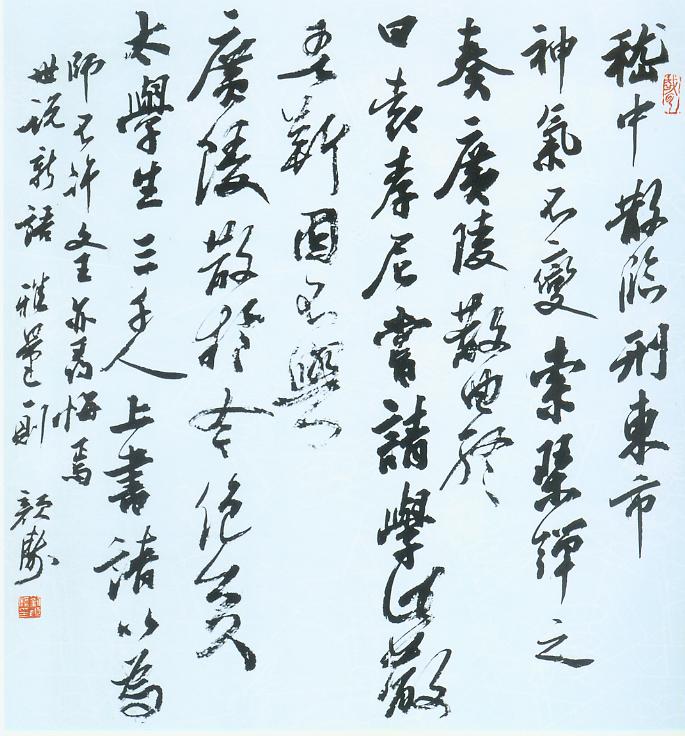 嵇中散臨刑東市
神氣不變索琴彈之
奏廣陵散曲終
曰袁孝尼嘗請學此散
吾靳固不與
廣陵散於今絕矣
太學生三千人上書請以為
師不許文王亦尋悔焉
世說新語雅量一則